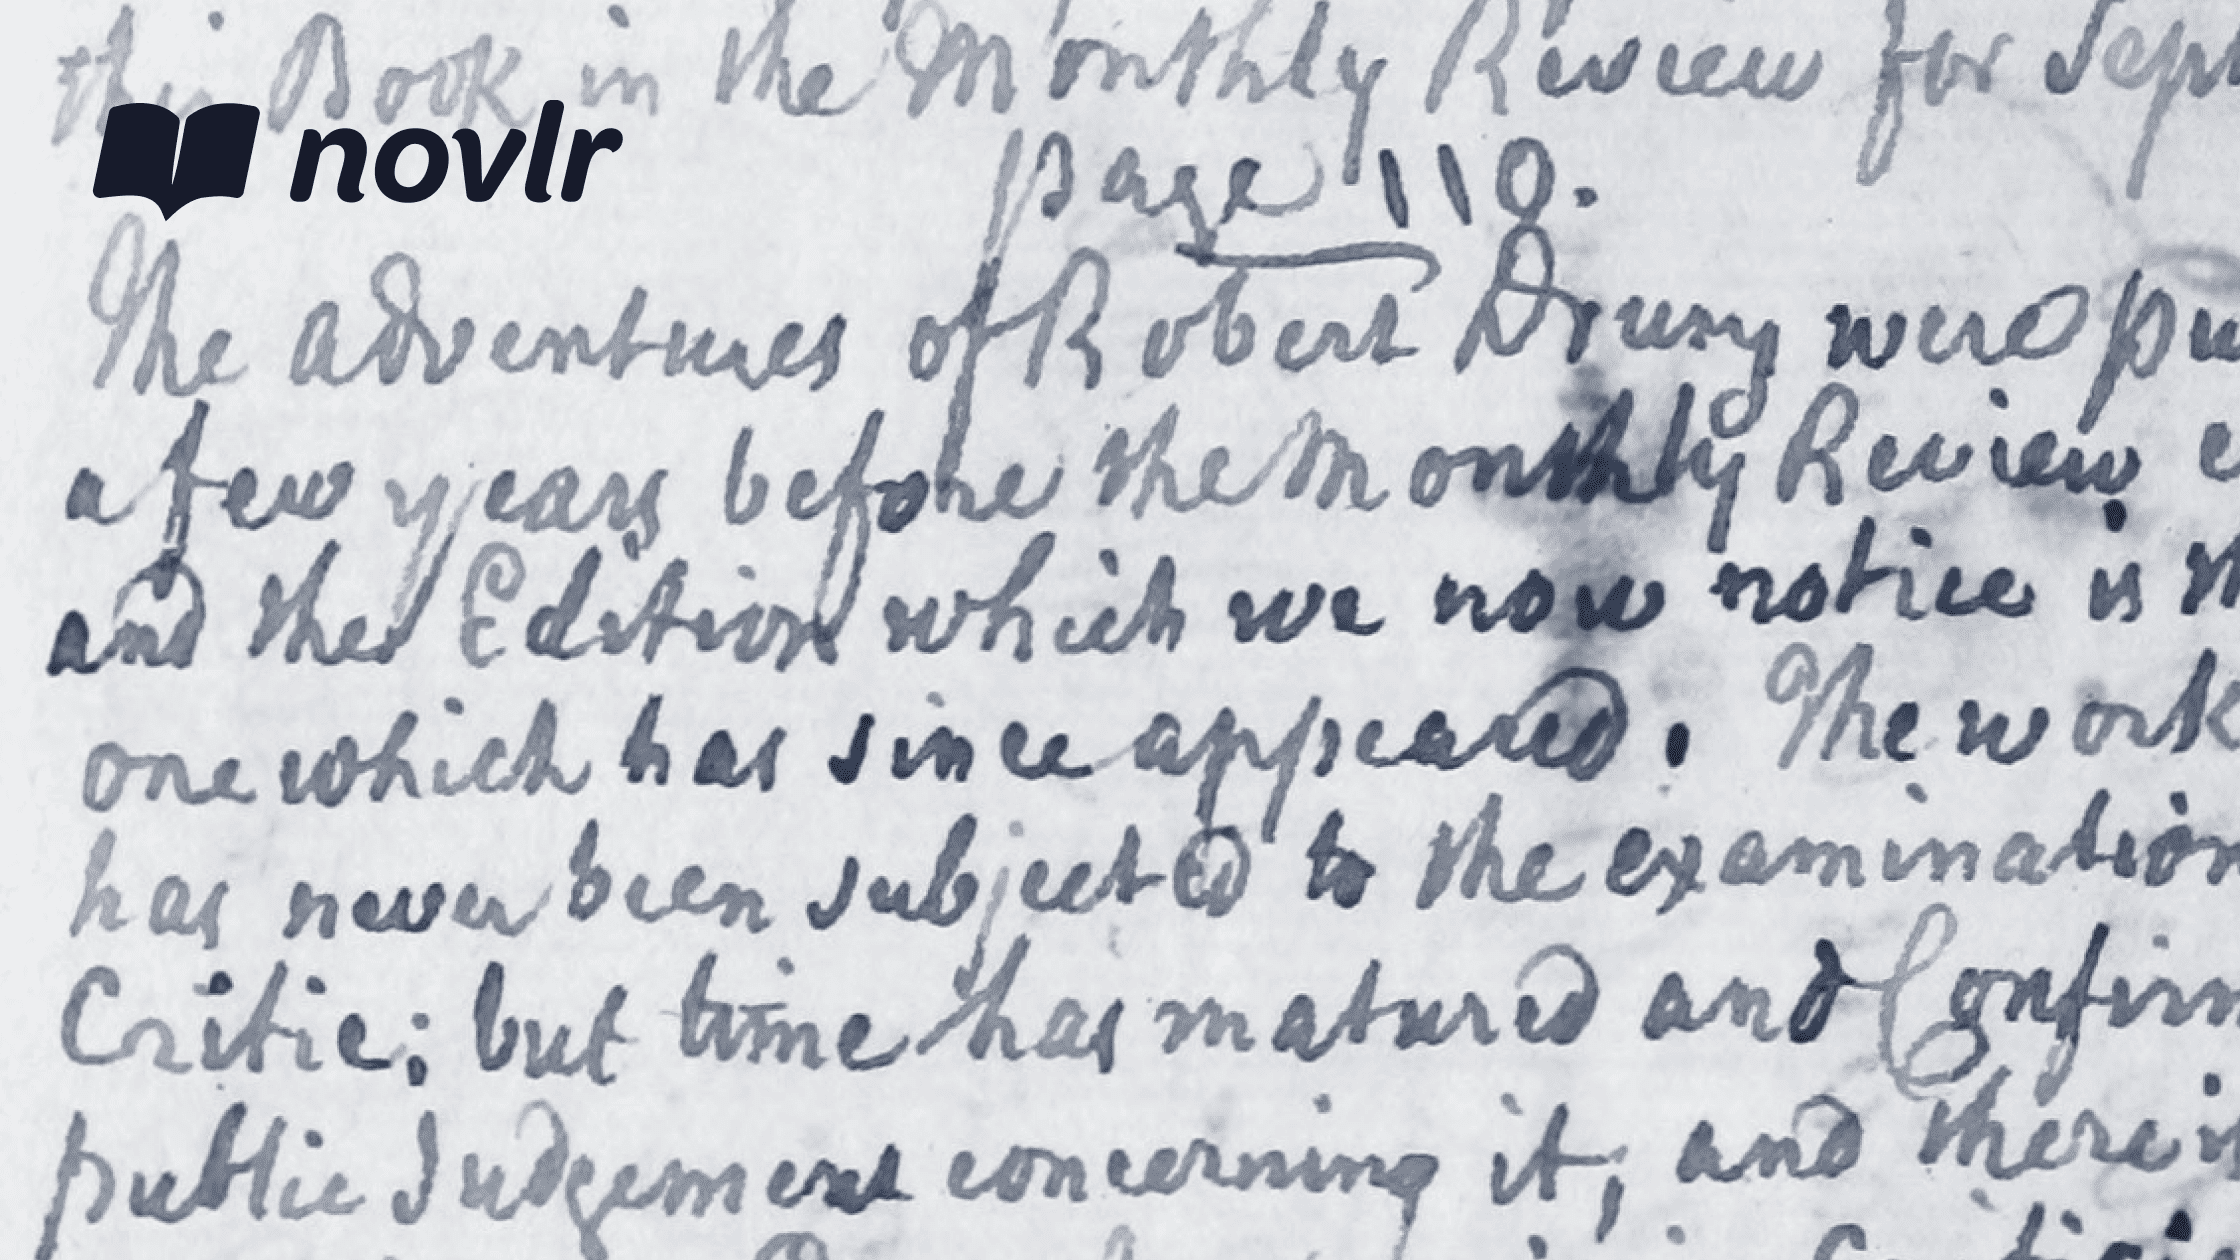 this Book in the Monthly Review for Sept
novlr
page 110.
The adventures of Robert Drury were pu
a few years before the Monthly Review e
and the Edition which we now notice is th
one which has since appeared. The work
has never been subjected to the examination
Critic; but time has matured and Confirm
public Judgement concerning it, and there i